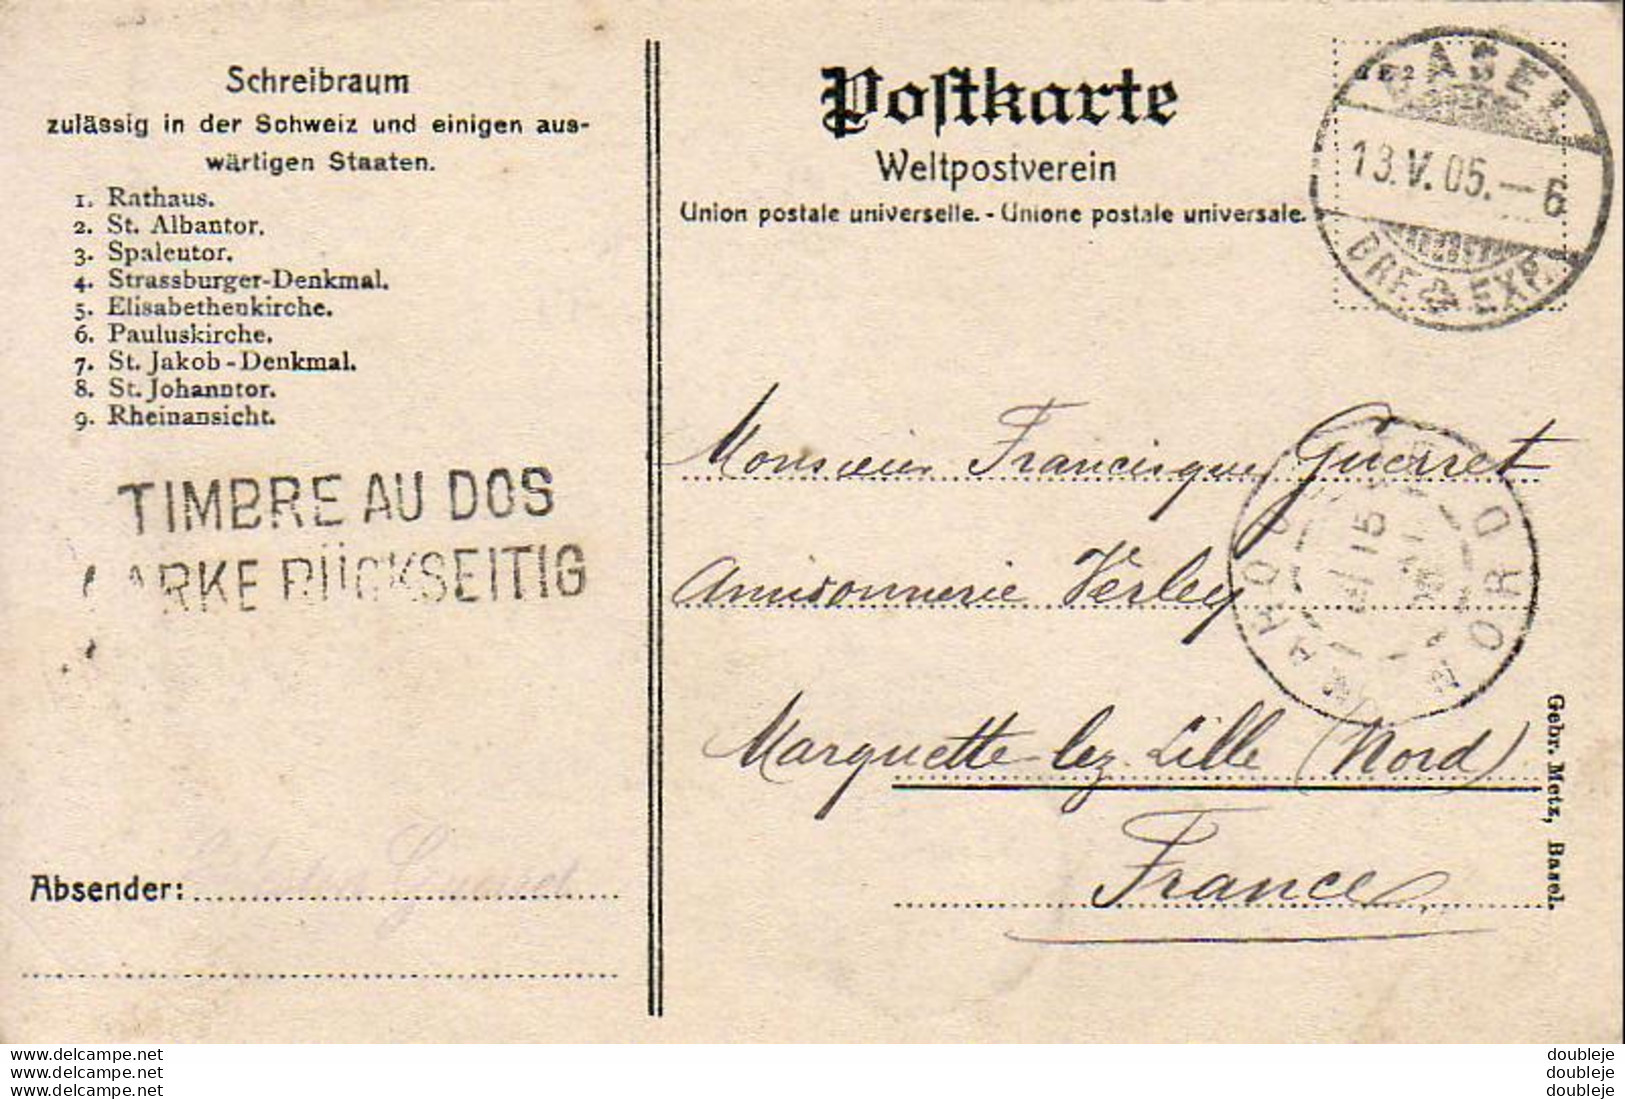 Schreibraum
zulässig in der Schweiz und einigen aus-
wärtigen Staaten.
1. Rathaus.
2. St. Albantor.
3. Spalentor.
4. Strassburger-Denkmal.
5. Elisabethenkirche.
6. Pauluskirche.
7. St. Jakob-Denkmal.
8. St. Johanntor.
9. Rheinansicht.
TIMBRE AU DOS
MARKE RÜCKSEITIG
Absender:
Postkarte
Weltpostverein
Union postale universelle. - Unione postale universale.
BASEL
13.V.05.-6
BRF. EXP.
Monsieur Francisque Guerret
Amidonnerie Verley
Marquette-lez-Lille (Nord)
France
15
NORD
Gebr. Metz, Basel.
www.delcampe.net
www.delcampe.net
www.delcampe.net
doubleje
doubleje
doubleje